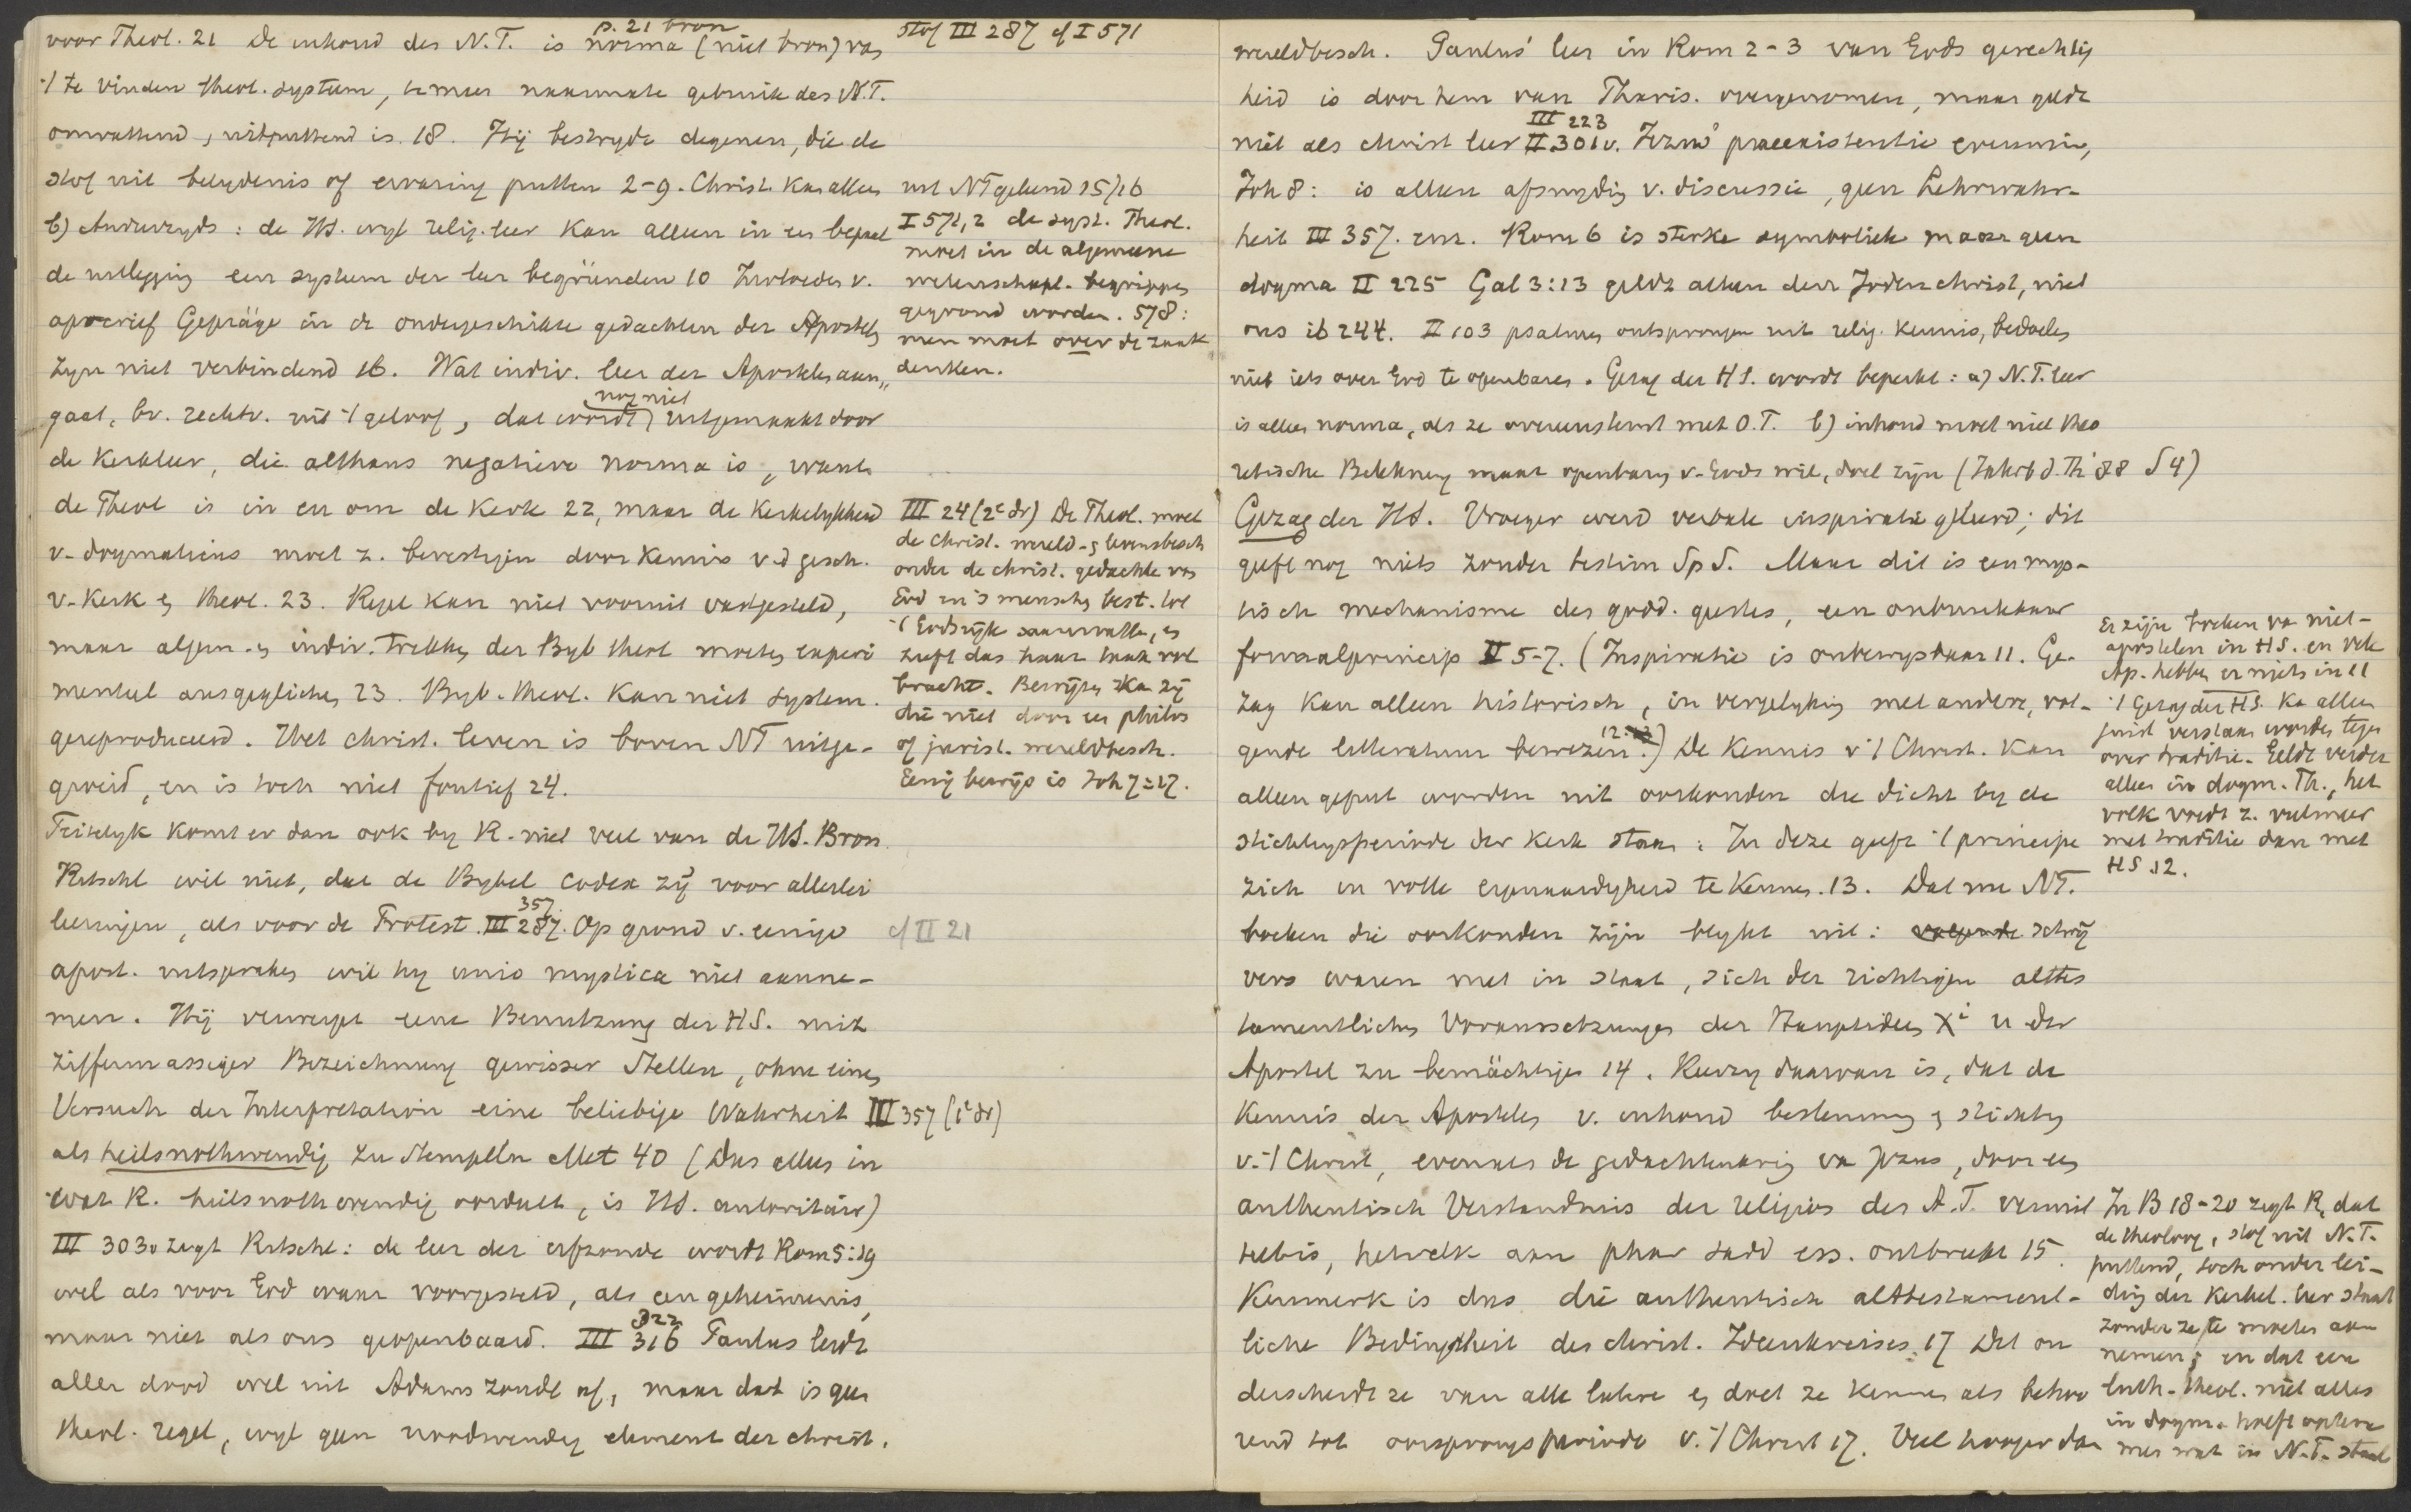 voor Theol. 21 De inhoud des N.T. is norma (niet bron) van
p. 21 bron
't te vinden theol. systeem, te meer naarmate gebruik des N.T.
omvattend, uitputtend is. 18. Hij bestrydt degenen, die de
stof uit belydenis of ervaring putten 2-9. Christ. kan alleen
b) Anderzyds: de HS. wyl relig. leer kan alleen in een bepaal
de uitlegging een system der leer begründen 10 Zwloedes v.
apocrief Gepräge in de ondergeschikte gedachten der Apostels
zyn niet verbindend 16. Wat indiv. leer der Apostelen aan„
gaat, bv. rechtv. uit 't geloof, dat wordt uitgemaakt door
nog niet
de kerkleer, die althans negatieve norma is, want
de Theol is in en om de kerk 22, maar de kerkelykheid
v. dogmaticus moet z. bevestigen door kennis v.d gesch.
v. kerk en theol. 23. Regel kan niet vooruit vastgesteld,
maar algem. en indiv. trekken der Byb theol moeten experi
menteel ausgeglichen 23. Byb. theol. kan niet system.
gereproduceerd. Het christ. leven is boven NT uitge-
groeid, en is toch niet foutief 24.
Feitelyk komt er dan ook by R. niet veel van de HS. Bron.
Ritschl wil niet, dat de Bybel codex zij voor allerlei
leeringen, als voor de Protest. III 287. Op grond v. eenige
357.
apost. uitspraken wil hy unio mystica niet aanne-
men. Hij verwerpt eene Benutzung der H.S. mit
ziffermassiger Bezeichnung gewisser Stellen, ohne einen
Versuch der Interpretation eine beliebige Wahrheit III 357 (1e dr)
als heilsnothwendig zu stempeln Met 40 (Dus alles in
wat R. heilsnothwendig oordeelt, is HS. autoritair)
III 303v zegt Ritschl: de leer der erfzonde wordt Rom 5:19
wel als voor God waar voorgesteld, als een geheimenis,
maar niet als ons geopenbaard. III 316 Paulus leidt
322
aller dood wel uit Adams zonde af, maar dat is geen
theol. regel, wyl geen noodwendig element der christ.
stof III 287 cf I 571
uit NT gekend 15/16
I 571, 2 de syst. Theol.
moet in de algemeene
wetenschapl. begrippen
gegrond worden. 578:
men moet over de zaak
denken.
III 24 (2e dr) De Theol. moet
de christ. wereld- en levensbesch
onder de christ. gedachte van
God en 's menschen best. tot
't Godsrijk samenvatten, en
heeft dus haar taak vol
bracht. Bewijzen ka zij
die niet door een philos
of jurist. wereldbesch.
Eenig bewijs is Joh 7:17.
cf II 21
wereldbesch. Paulus' leer in Rom 2-3 van Gods gerechtig
heid is door hem van Pharis. overgenomen, maar geldt
niet als christ leer II 301v. Jezus' praeexistentie evenmin,
III 223
Joh 8: is alleen afsnyding v. discussie, geen Lehrwahr-
heit III 357. enz. Rom 6 is sterke symboliek maar geen
dogma II 225 Gal 3:13 geldt alleen den Joden christ, niet
ons ib 244. II 103 psalmen ontsprongen uit relig. kennis, bedoelen
niet iets over God te openbaren. Gezag der H S. wordt beperkt: a) N.T. leer
is alleen norma, als ze overeenstemt met O.T. b) inhoud moet niet theo
retische Belehrung maar openbaring v. Gods wil, doel zijn (Jahrb d. Th '88 S 4)
Gezag der HS. Vroeger werd verbale inspiratie geleerd; dit
geeft nog niets zonder testim Sp S. Maar dit is een mys-
tisch mechanisme des godd. geestes, een onbruikbaar
formaalprincip II 5-7. (Inspiratie is onbewysbaar 11. Ge-
zag kan alleen historisch, in vergelyking met andere, vol-
gende litteratuur bewezen.) De kennis v 't Christ. kan
alleen geput worden uit oorkonden die dicht by de
stichtingsperiode der kerk staan: In deze geeft 't principe
zich in volle eigenaardigheid te kennen. 13. Dat nu NT.
boeken die oorkonden zijn blykt uit: volgende schrij
vers waren niet in staat, sich der richtigen alttes
tamentlichen Voraussetzungen der Hauptideen Xi u der
Apostel zu bemächtigen 14. Keerzy daarvan is, dat de
kennis der Apostelen v. inhoud bestemming en stichting
v. 't Christ, evenals de gedachtenkring van Jezus, door een
authentisch Verstandnis der religion des A.T. vermit
telt is, hetwelk aan phar sadd ess. ontbreekt 15.
Kenmerk is dus die authentisch alttestament-
liche Bedingtheit des christ. Ideenkreises. 17 Dat on
derscheidt ze van alle latere en doet ze kennen als behoo
rend tot oorsprongsperiode v. 't Christ 17. Veel hooger dan
Er zijn boeken van niet-
apostelen in HS. en vele
Ap. hebben er niets in 11
't Gezag der HS. ka alleen
juist verstaan worden tegen
over traditie. Geldt verder
alleen in dogm. Th., het
volk voedt z. veelmeer
met traditie dan met
HS. 12.
In B 18-20 zegt R. dat
de theoloog, stof uit N.T.
puttend, toch onder lei-
ding der kerkel. leer staat
zonder ze te moeten aan
nemen; en dat een
luth. theol. niet alles
in dogm. hoeft optene
men wat in N.T. staat